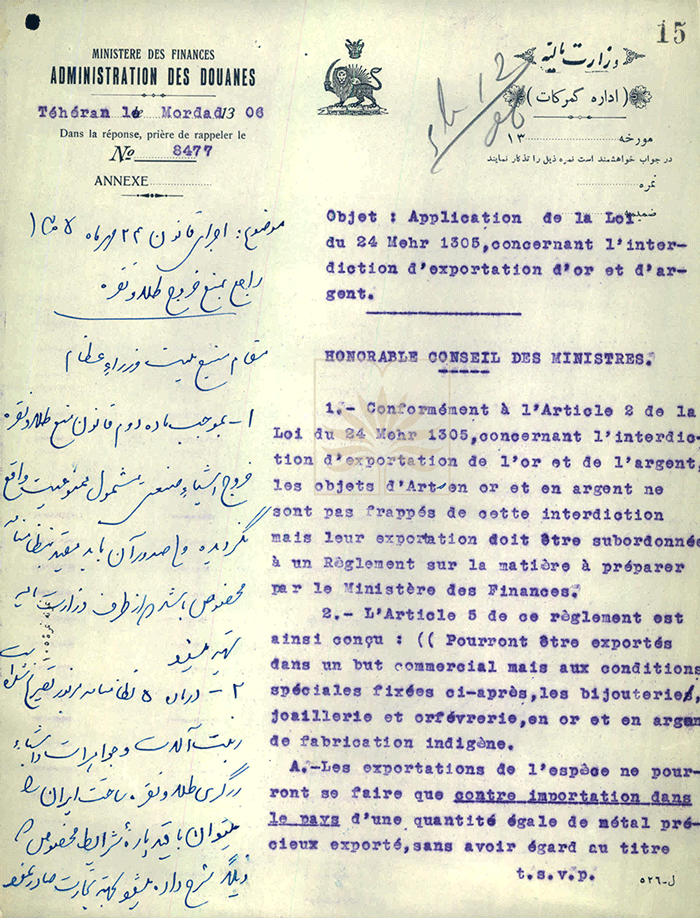 15
MINISTERE DES FINANCES
ADMINISTRATION DES DOUANES
Téhéran le Mordad 13 06
Dans la réponse, prière de rappeler le
No 8477
ANNEXE
وزارت مالیه
(اداره گمرکات)
مورخه ۱۳
در جواب خواهشمند است نمره ذیل را تذکار نمایند
نمره
ضمیمه
Objet : Application de la Loi
du 24 Mehr 1305,concernant l'inter-
diction d'exportation d'or et d'ar-
gent.
HONORABLE CONSEIL DES MINISTRES.
1.- Conformément à l'Article 2 de la
Loi du 24 Mehr 1305,concernant l'interdic
tion d'exportation de l'or et de l'argent,
les objets d'Art en or et en argent ne
sont pas frappés de cette interdiction
mais leur exportation doit être subordonnée
à un Règlement sur la matière à préparer
par le Ministère des Finances.
2.- L'Article 5 de ce règlement est
ainsi conçu : (( Pourront être exportés
dans un but commercial mais aux conditions
spéciales fixées ci-après,les bijouteries,
joaillerie et orfèvrerie,en or et en argen
de fabrication indigène.
A.-Les exportations de l'espèce ne pour-
ront se faire que contre importation dans
le pays d'une quantité égale de métal pré-
cieux exporté,sans avoir égard au titre
t.s.v.p.
ل-۵۲۶
موضوع: اجرای قانون ۲۴ مهر ماه
راجع بمنع خروج طلا و نقره
مقام منیع هیئت وزراء عظام
۱- بموجب ماده دوم قانون منع طلا و نقره
خروج اشیاء صنعتی مشمول ممنوعیت واقع
نگردیده و صدور آن باید مقید بنظامنامه
مخصوص باشد که از طرف وزارت مالیه
تهیه میشود
۲- در ماده ۵ نظامنامه مزبور
زینت آلات و جواهرات و اشیاء
زرگری طلا و نقره ساخت ایران را
میتوان با قید پاره شرایط مخصوص که
ذیلاً شرح داده میشود بجهة تجارت صادر نمود